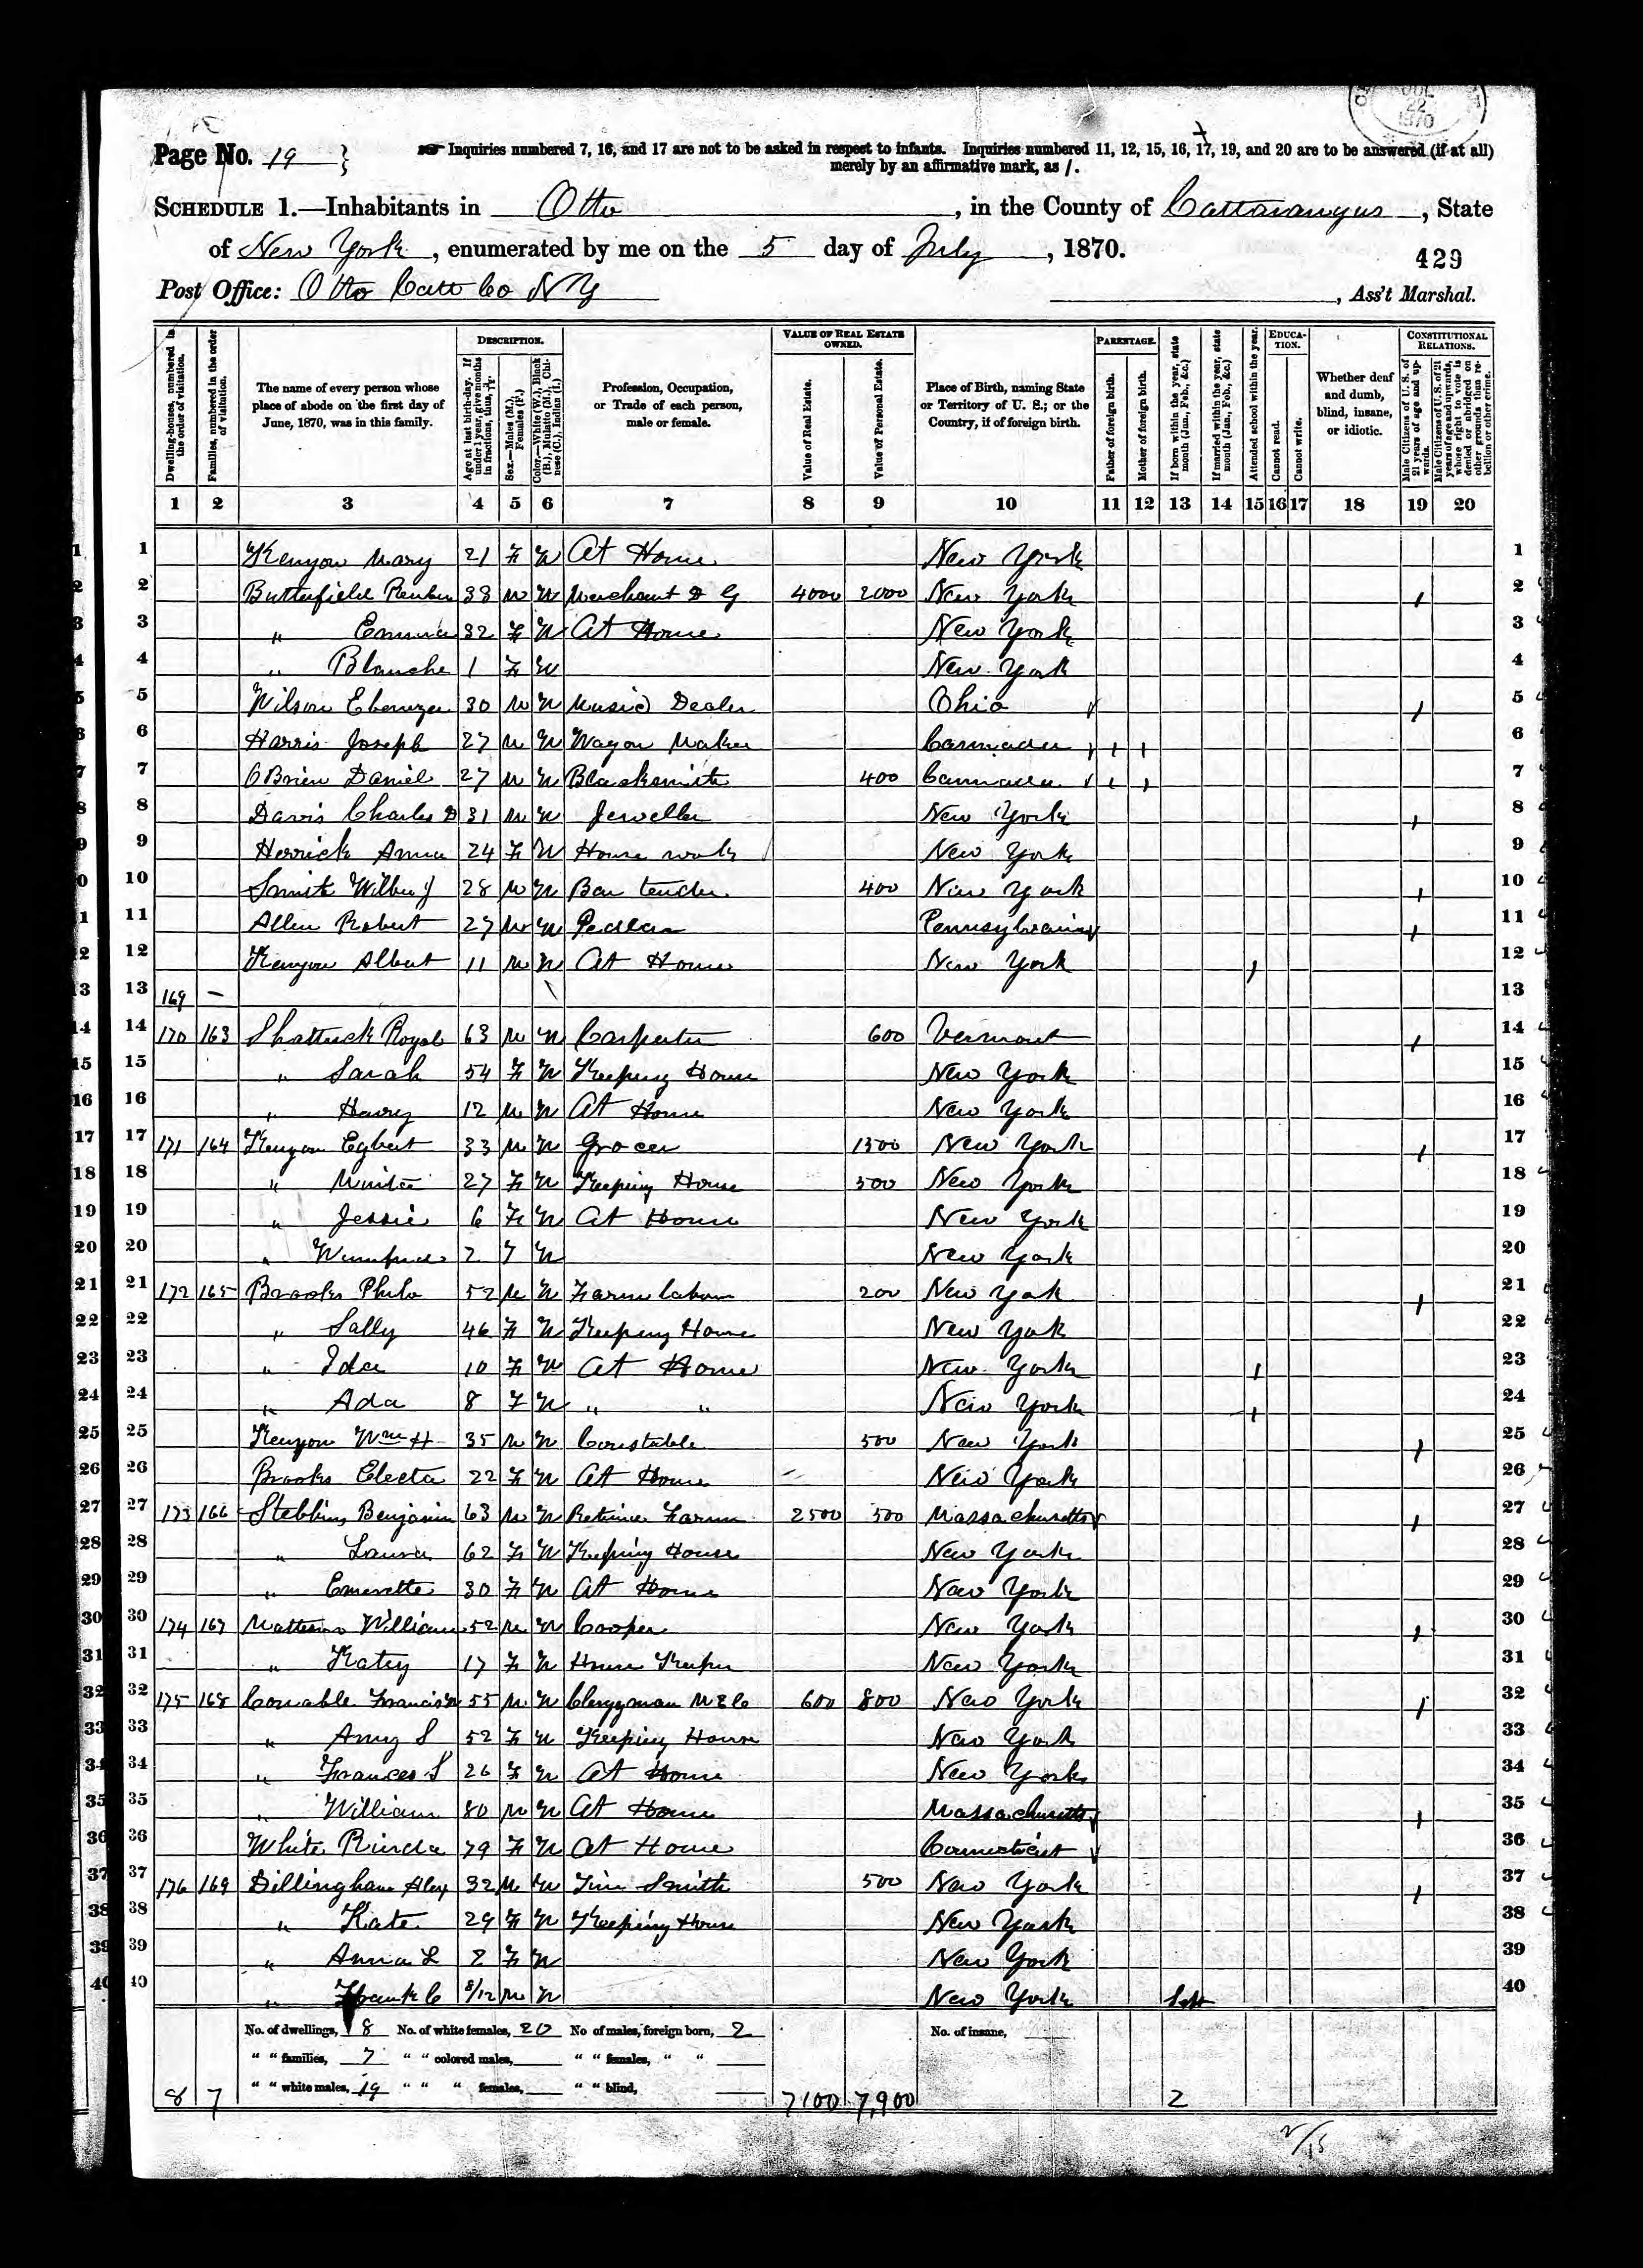 JUL
22
1870
Page No. 19
Inquiries numbered 7, 16, and 17 are not to be asked in respect to infants. Inquiries numbered 11, 12, 15, 16, 17, 19, and 20 are to be answered (if at all)
merely by an affirmative mark, as /.
SCHEDULE 1.—Inhabitants in Otto, in the County of Cattaraugus, State
of New York, enumerated by me on the 5 day of July, 1870.
429
Post Office: Otto Catt Co N Y , Ass't Marshal.
Dwelling-houses, numbered in the order of visitation.
Families, numbered in the order of visitation.
The name of every person whose place of abode on the first day of June, 1870, was in this family.
DESCRIPTION.
Age at last birth-day. If under 1 year, give months in fractions, thus, 3/12.
Sex.—Males (M.), Females (F.)
Color.—White (W.), Black (B.), Mulatto (M.), Chinese (C.), Indian (I.)
Profession, Occupation, or Trade of each person, male or female.
VALUE OF REAL ESTATE OWNED.
Value of Real Estate.
Value of Personal Estate.
Place of Birth, naming State or Territory of U. S.; or the Country, if of foreign birth.
PARENTAGE.
Father of foreign birth.
Mother of foreign birth.
If born within the year, state month (Jan., Feb., &c.)
If married within the year, state month (Jan., Feb., &c.)
Attended school within the year.
EDUCATION.
Cannot read.
Cannot write.
Whether deaf and dumb, blind, insane, or idiotic.
CONSTITUTIONAL RELATIONS.
Male Citizens of U. S. of 21 years of age and upwards.
Male Citizens of U. S. of 21 years of age and upwards, whose right to vote is denied or abridged on other grounds than rebellion or other crime.
1 2 3 4 5 6 7 8 9 10 11 12 13 14 15 16 17 18 19 20
1 Kenyon Mary 21 F W At Home New York 1
2 Butterfield Reuben 38 M W Merchant D G 4000 2000 New York / 2
3 " Emma 32 F W At Home New York 3
4 " Blanche 1 F W New York 4
5 Wilson Ebenezer 30 M W Music Dealer Ohio / 5
6 Harris Joseph 27 M W Wagon Maker Cannada / / 6
7 OBrien Daniel 27 M W Blacksmith 400 Cannada / / 7
8 Davis Charles D 31 M W Jeweller New York / 8
9 Herrick Anna 24 F W House work New York 9
10 Smith Wilber J 28 M W Bar tender 400 New York / 10
11 Allen Robert 27 M W Pedlar Pennsylvania / 11
12 Kenyon Albert 11 M W At Home New York / 12
13 169 — 13
14 170 163 Shattuck Royal 63 M W Carpenter 600 Vermont / 14
15 " Sarah 54 F W Keeping House New York 15
16 " Harry 12 M W At Home New York 16
17 171 164 Kenyon Egbert 33 M W Grocer 1500 New York / 17
18 " 27 F W Keeping House 500 New York 18
19 " Jessie 6 F W At Home New York 19
20 " 2 F W New York 20
21 172 165 Brooks Philo 52 M W Farm labor 200 New York / 21
22 " Sally 46 F W Keeping House New York 22
23 " Ida 10 F W At Home New York / 23
24 " Ada 8 F W " " New York / 24
25 Kenyon Wm H 35 M W Constable 500 New York / 25
26 Brooks Electa 22 F W At Home New York 26
27 173 166 Stebbins Benjamin 63 M W Farmer 2500 500 Massachusetts / 27
28 " Laura 62 F W Keeping House New York 28
29 " Emerette 30 F W At Home New York 29
30 174 167 Matteson William 52 M W Cooper New York / 30
31 " Katey 17 F W House Keeper New York 31
32 175 168 Conable Francis 55 M W Clergyman M E C 600 800 New York / 32
33 " Amy S 52 F W Keeping House New York 33
34 " Frances S 26 F W At Home New York 34
35 " William 80 M W At Home Massachusetts / 35
36 White 79 F W At Home Connecticut 36
37 176 169 Dillingham Alex 32 M W Tin Smith 500 New York / 37
38 " Kate 29 F W Keeping House New York 38
39 " Anna L 2 F W New York 39
40 " Frank C 8/12 M W New York Sept 40
No. of dwellings, 8 No. of white females, 20 No of males, foreign born, 2 No. of insane,
" " families, 7 " " colored males, " " females, " "
" " white males, 19 " " " females, " " blind,
8 7 7100 7,900 2
2/15